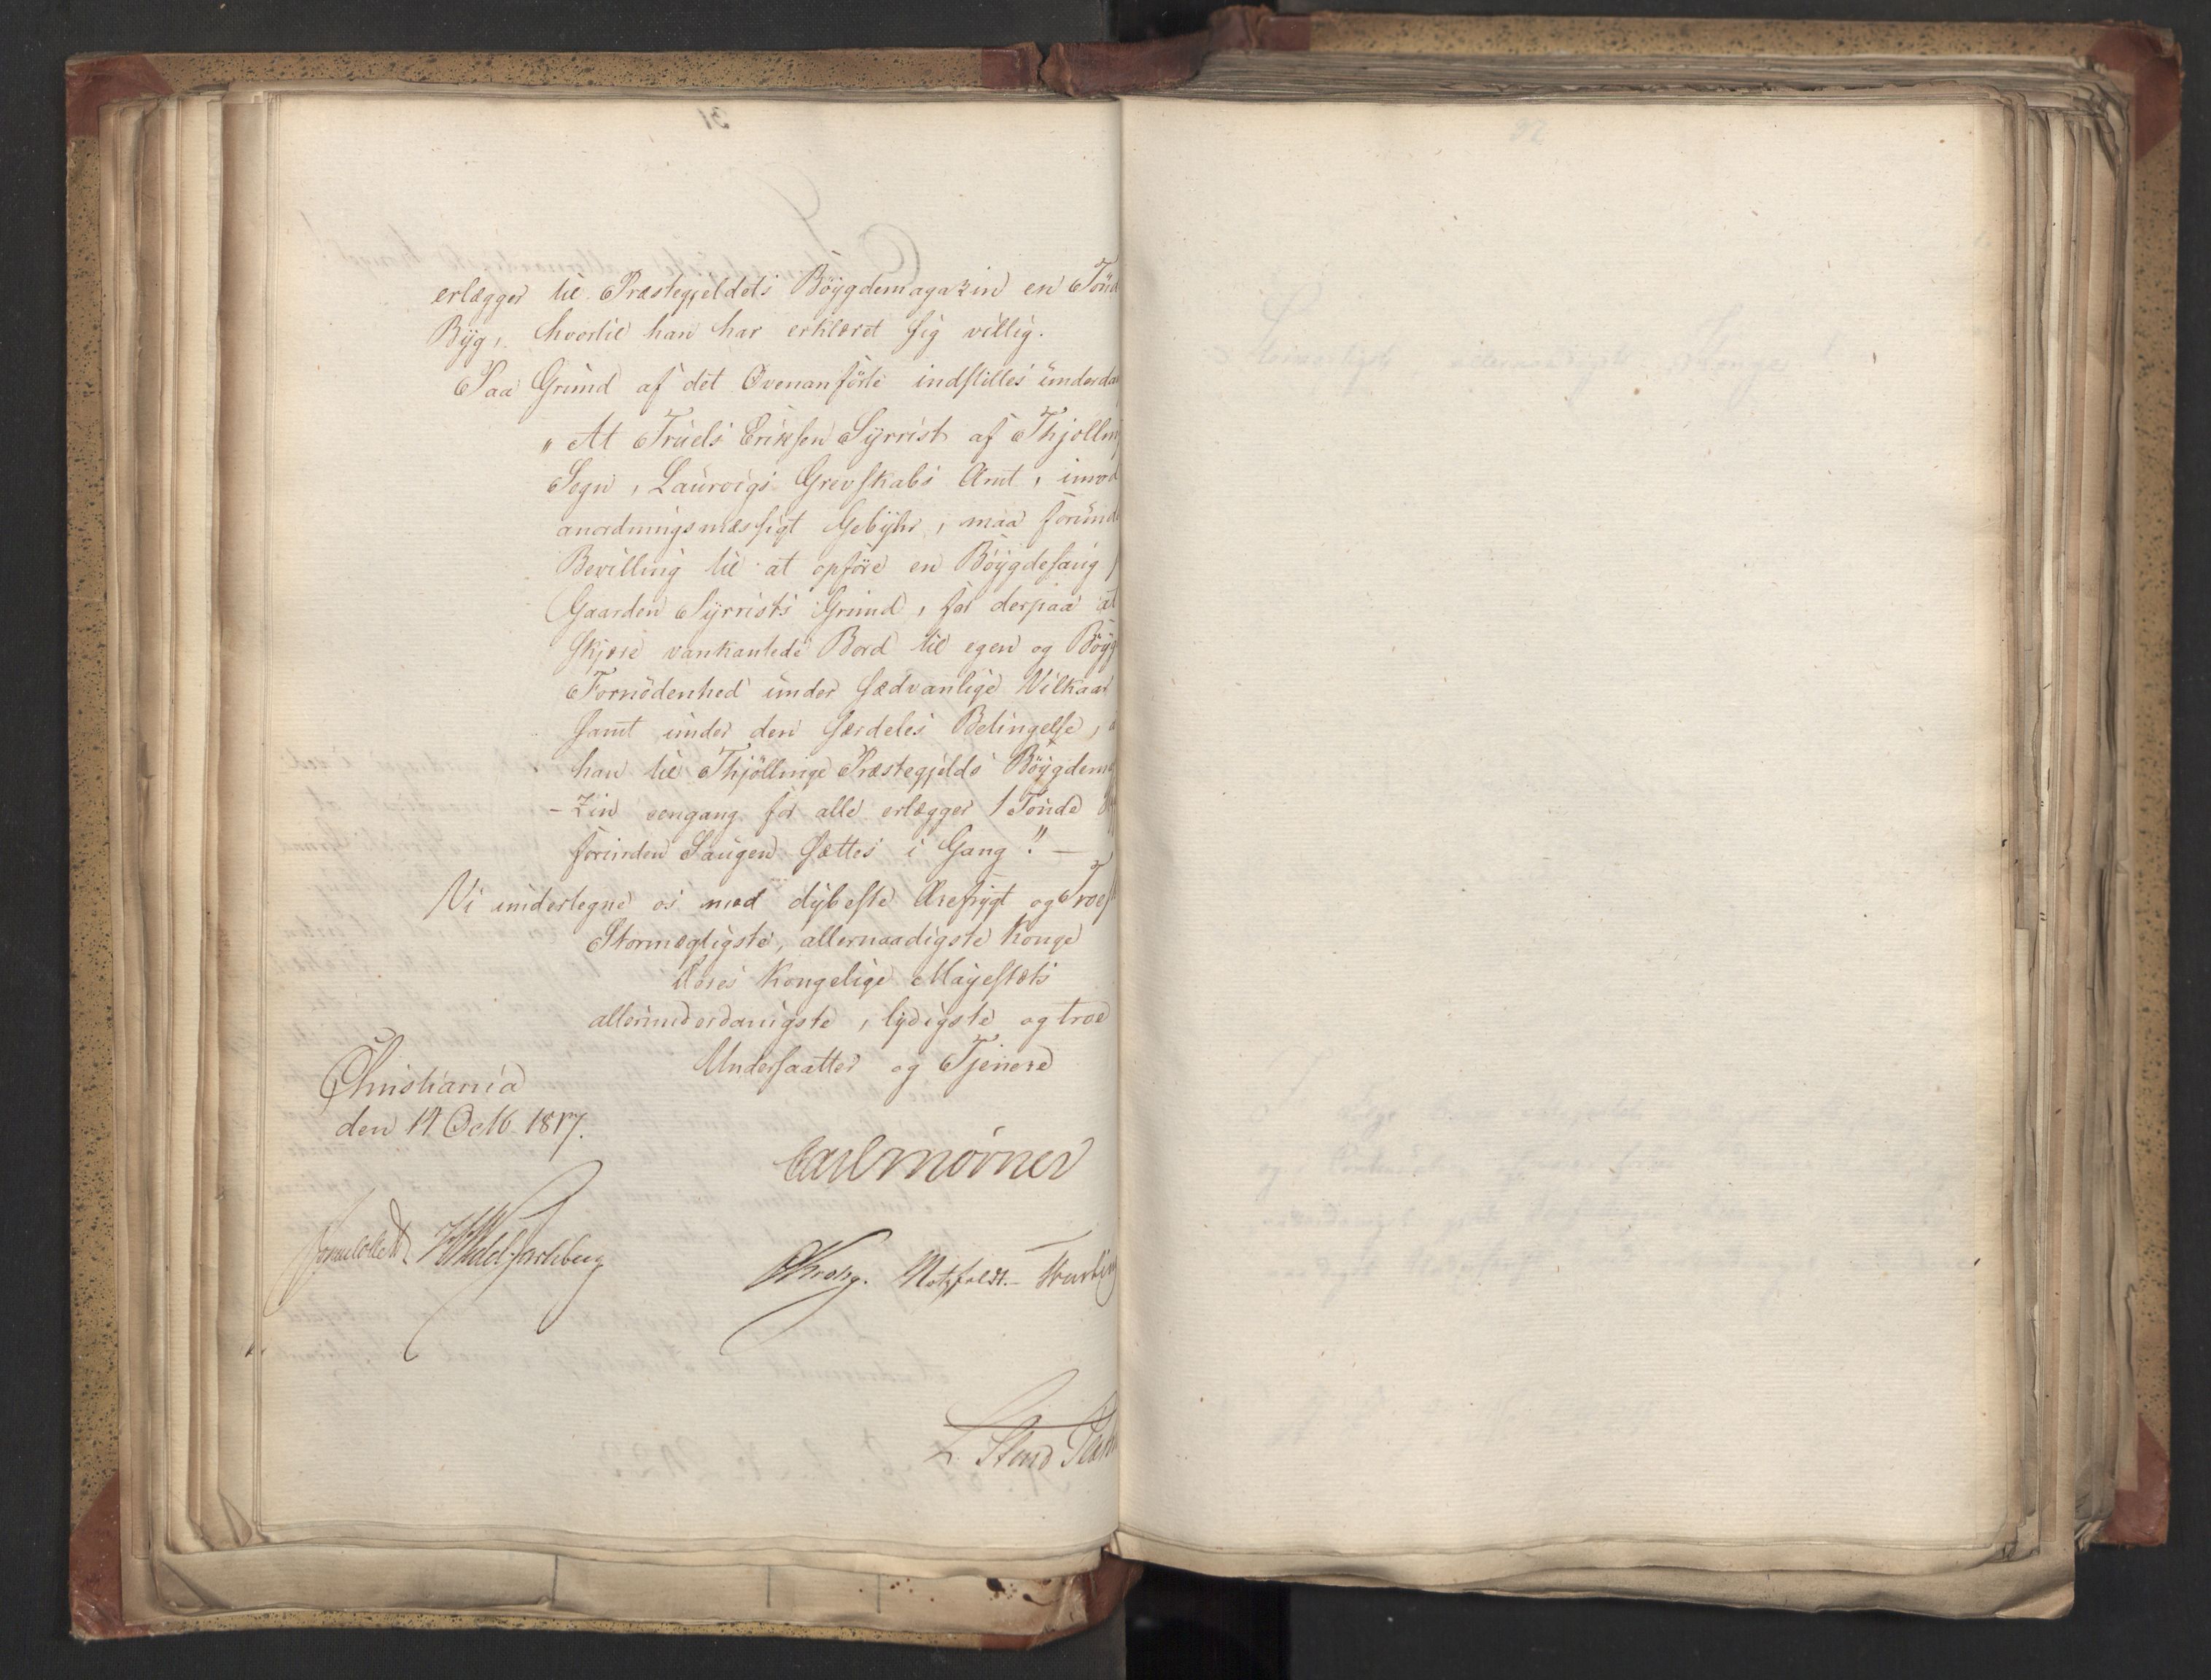 erlægger til Præstegjeldets Böygdemagazin en Tönd
Byg, hvortil han har erklæret sig villig.
Paa Grund af det Ovenanförte indstilles underda
„At Truels Eriksen Syrrist af Thjølling
Sogn, Laurvigs Grevskabs Amt, imod
anordningsmæssigt Gebyhr, maa forund
Bevilling til at opföre en Böygdesaug
Gaarden Syrrists Grund, for derpaa at
skjære vankantede Bord til egen og Böyg
Fornödenhed under sædvanlige Vilkaar
samt under den særdeles Betingelse, a
han til Thjöllings Præstegjelds Böygdema
-zin eengang for alle erlægger 1 Tönde
forinden Saugen sættes i Gang." —
Vi undertegne os med dybeste Ærefrygt og Troes
Stormægtigste, allernaadigste Konge
Deres Kongelige Mayestæts
allerunderdanigste, lydigste og troe
Undersaatter og Tjenere
Christiania
den 14 Octb 1817.
Carl Mörner
Jonas Collett. HWedel Jarlsberg
CKrohg. Motzfeldt.
L. Stoud Plato